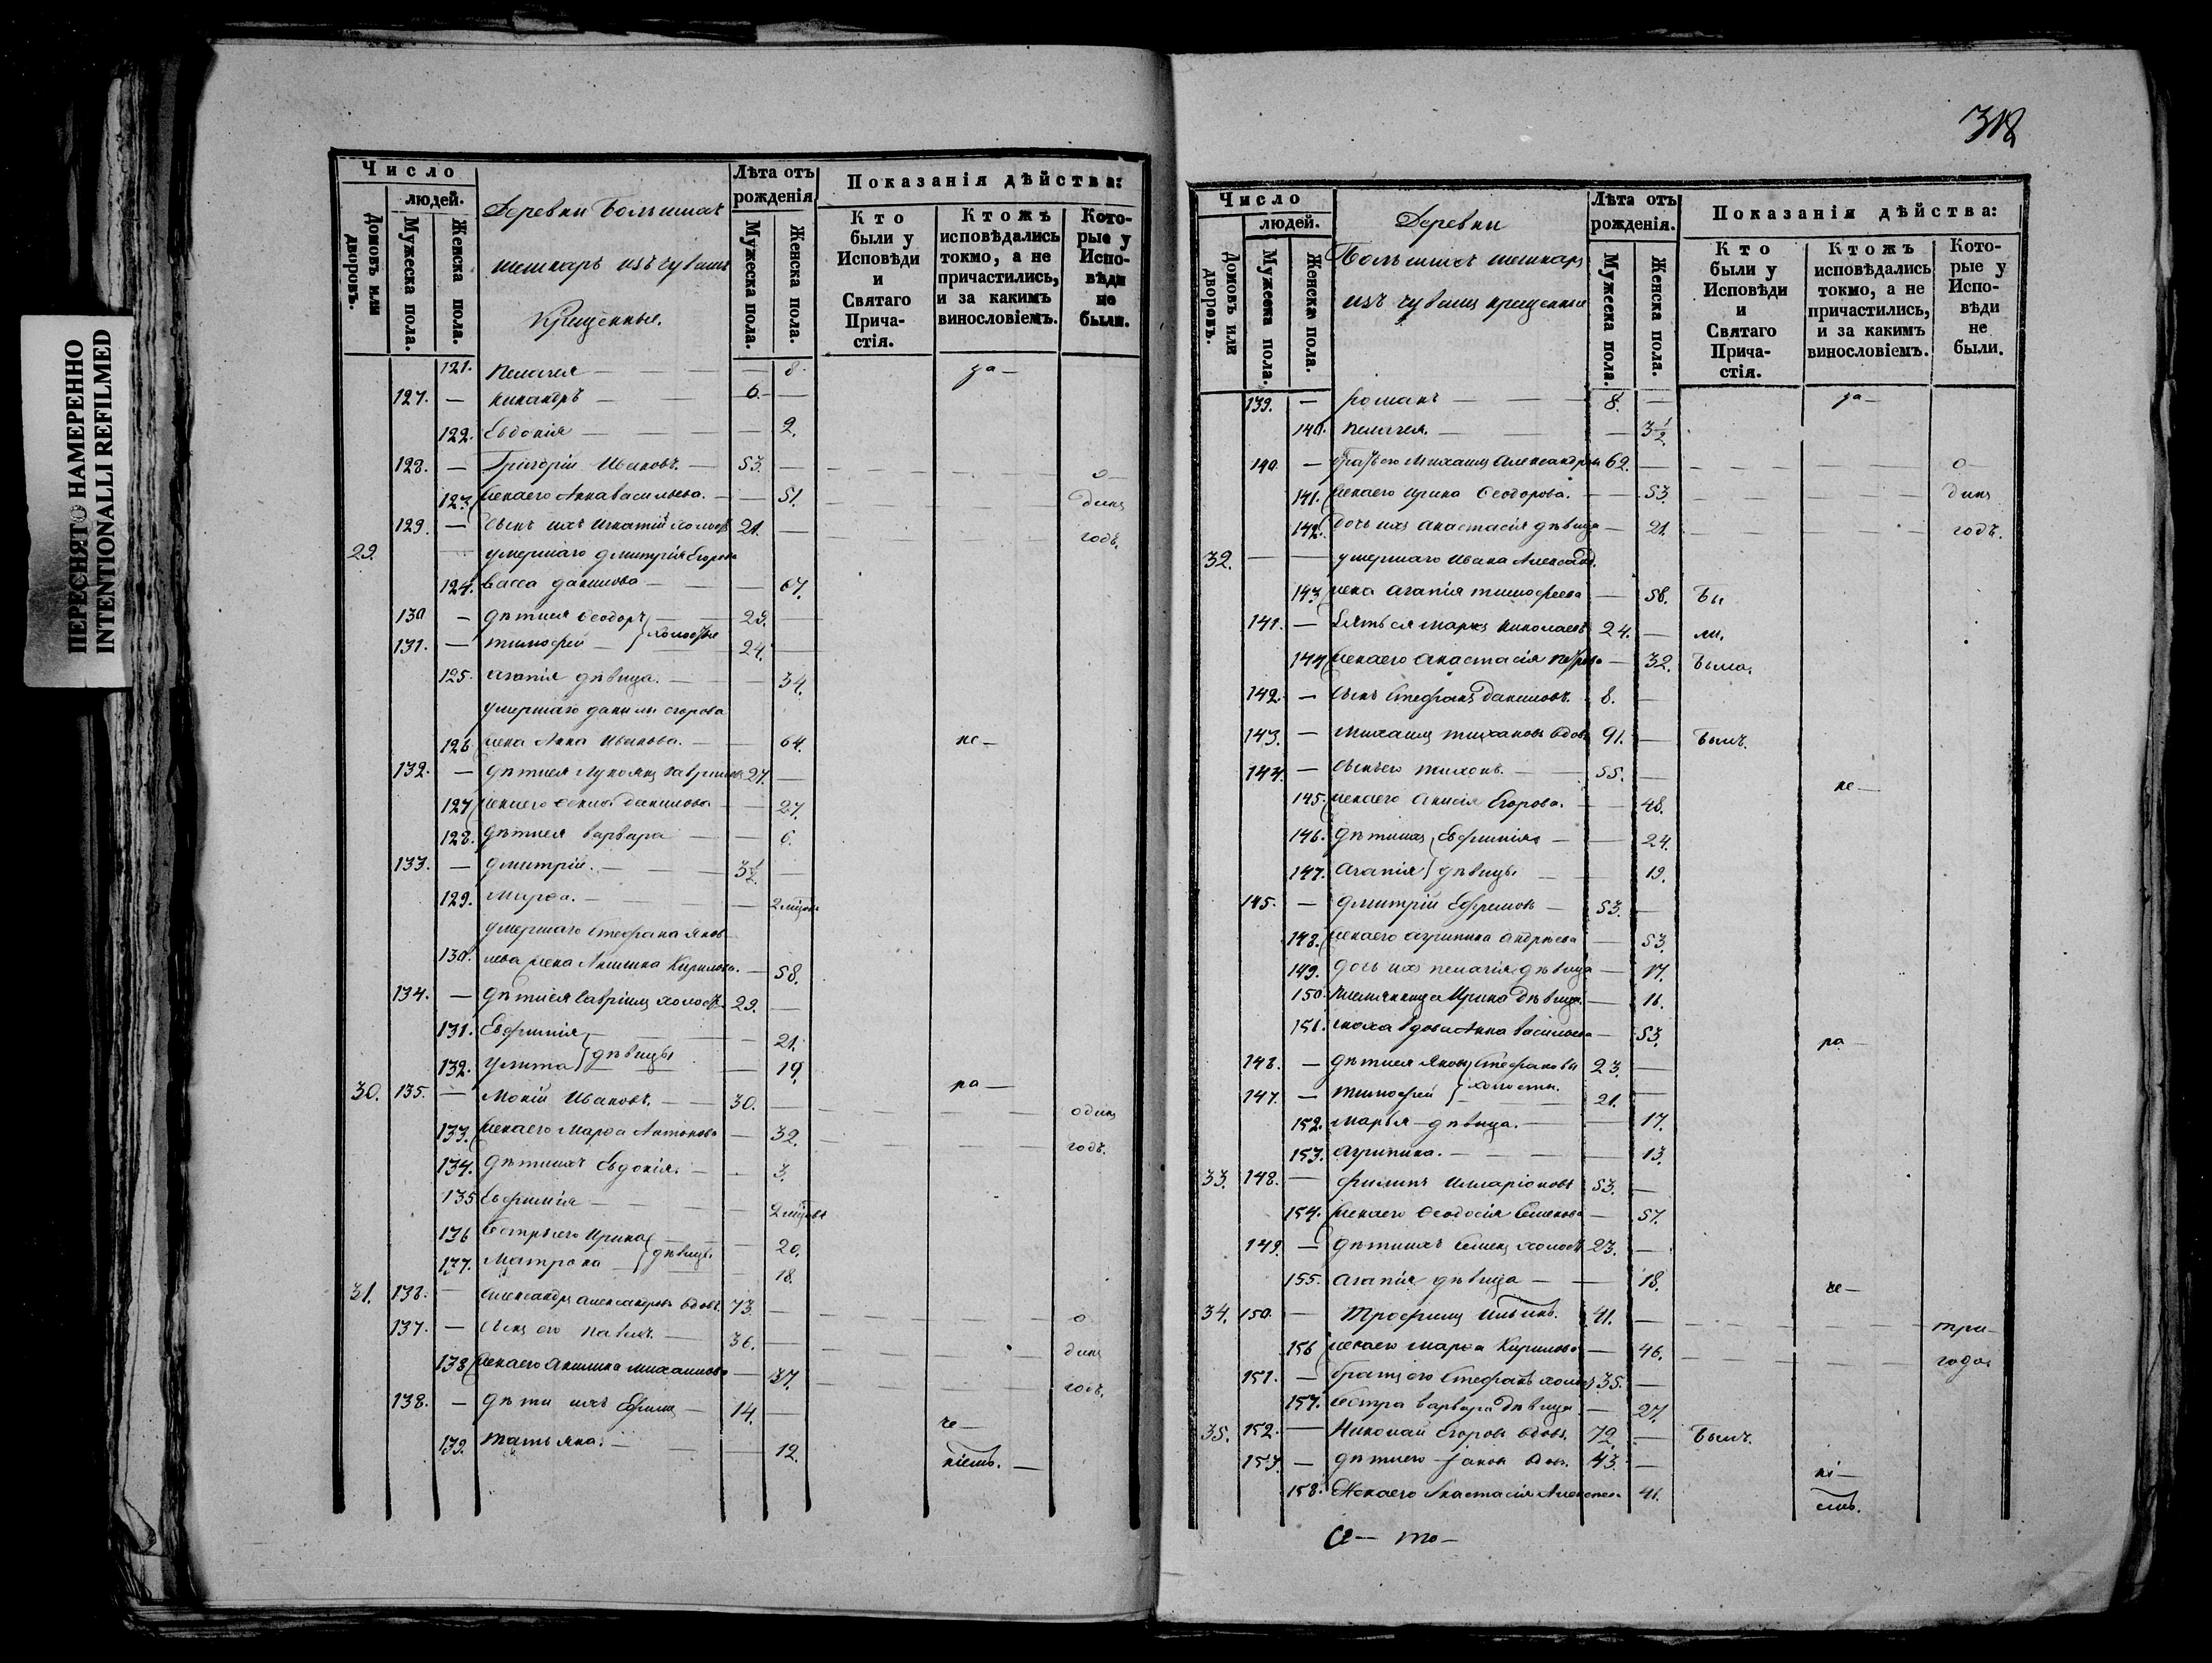 ПЕРЕСНЯТО НАМЕРЕННО
INTENTIONALLI REFILMED
Число
людей.
Домовъ или дворовъ.
Мужеска пола.
Женска пола.
Деревни Большихъ
шешкаръ изъ чувашъ
Крещенные.
Лѣта отъ рожденія
Мужеска пола.
Женска пола.
Показанія дѣйства:
Кто были у Исповѣди и Святаго Причастія.
Ктожъ исповѣдались токмо, а не причастились, и за какимъ винословіемъ.
Которые у Исповѣди не были.
121. Пелагея — — — 8. за —
127. — Никандръ — 6. —
122. Евдокія — — — 2.
128. — Григорій Ивановъ. — 53. — о —
123. жена его Анна Васильева. — — 51. динъ
129. — Сынъ ихъ Игнатій холостъ 21. — годъ.
29. умершаго Дмитрія Егорова
124. Васса Данилова — — 67.
130 — дѣти ея Ѳеодоръ — 29. —
131. — Тимофей — } холостые 24. —
125. Агапія дѣвица. — — 34.
умершаго Данилы Егорова
126. жена Анна Иванова. — — 64. не —
132. — дѣти ея Лукоянъ 27. —
127. жена его Данилова — 27.
128. дѣти ея Варвара — — 6.
133. — Дмитрій. — — 3½. —
129. Марѳа. — — 2 мѣсяц.
умершаго Стефана Яков
130. лева жена Акилина Кирилова. — 58.
134. — дѣти ея Гаврiилъ холостъ 29. —
131. Евфимія — — 21.
132. Улита } дѣвицы — 19.
30. 135. — Мокій Ивановъ. — 30. — ра — одинъ
133. жена его Марѳа Антонова — 32. годъ.
134. дѣти ихъ Евдокія. — — 3.
135 Евфимія — — — 2 мѣсяц.
136 Сестры его Ирина — — 20.
137. Матрона — } дѣвицы — 18.
31. 136. — Александръ Александровъ вдовъ. 73. — о
137. — Сынъ его Павелъ. — 36. — динъ
138. жена его Акилина Михаилова — 37. годъ.
138. — дѣти ихъ Ефимъ — 14. — че —
139. Татьяна. — — 12. ніемъ. —
318
Число
людей.
Домовъ или дворовъ.
Мужеска пола.
Женска пола.
Деревни
Большихъ шешкаръ
изъ чувашъ крещенные
Лѣта отъ рожденія.
Мужеска пола.
Женска пола.
Показанія дѣйства:
Кто были у Исповѣди и Святаго Причастія.
Ктожъ исповѣдались токмо, а не причастились, и за какимъ винословіемъ.
Которые у Исповѣди не были.
139. — Романъ — — 8. — за —
140. Пелагея. — — — 3½
140. — братъ его Михаилъ Александровъ 62. — о —
141. жена его Ирина Ѳеодорова. — — 53. динъ
142. дочь ихъ Анастасія дѣвица — 21. годъ.
32. — — умершаго Ивана Александ.
143. жена Агапія Тимофеева — 58. Бы
141. — Зять ея Марко Николаевъ 24. — ли.
144. жена его Анастасія Петрова — 32. Была.
142. — Сынъ Стефанъ Даниловъ. 8. —
143. — Михаилъ Тихановъ вдовъ 91. — Былъ.
144. — Сынъ его Тихонъ. — 55. — не —
145. жена его Анисія Егорова. — — 48.
146. дѣти ихъ Евфимія — — 24.
147. Агапія } дѣвицы — 19.
145. — Дмитрій Ефремовъ — 53. —
148. жена его Агрипина Андрѣева — 53.
149. дочь ихъ Пелагія дѣвица — 17.
150. племянница Ирина дѣвица. — 16.
151. сноха вдова Анна Васильева — 53. ра —
146. — дѣти ея Яковъ Стефановы 23. —
147. — Тимофей } холосты. 21. —
152. Марья — дѣвица. — — 17.
153. Агрипина. — — — 13.
33. 148. — Филипъ Илларіоновъ 53. —
154. жена его Ѳеодосія Семенова — 57.
149. — дѣти ихъ Семенъ холостъ 23. —
155. Агапія дѣвица — — 18. че —
34. 150. — Трофимъ Ильинъ. 41. — три —
156 жена его Марѳа Кирилова — 46. года
151. — братъ его Стефанъ холостъ 35. —
157. Сестра Варвара дѣвица — — 27.
35. 152. — Николай Егоровъ вдовъ. 72. — Былъ.
153. — дѣти его Яковъ 43. — ні —
158. Жена его Анастасія Алексеева 41. емъ.